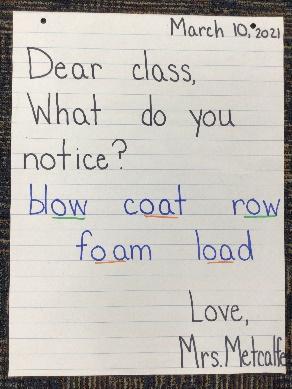 March 10, 2021
Dear class,
What do you
notice?
blow coat row
foam load
Love,
Mrs. Metcalfe